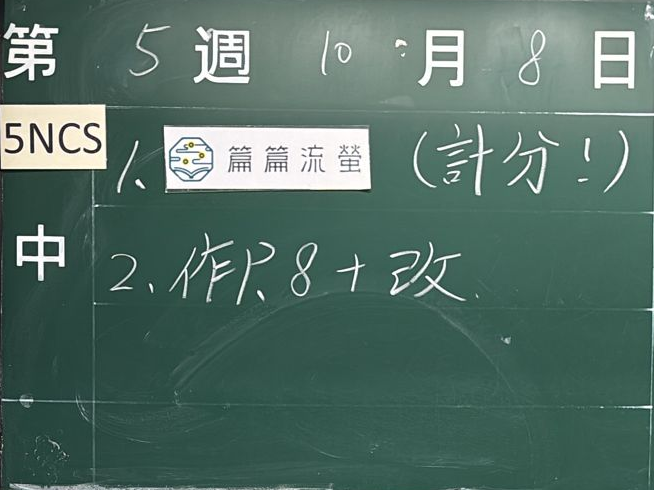 第 5 週 10 月 8 日
5NCS
1. 篇篇流螢 (計分!)
中
2. 作P.8+改